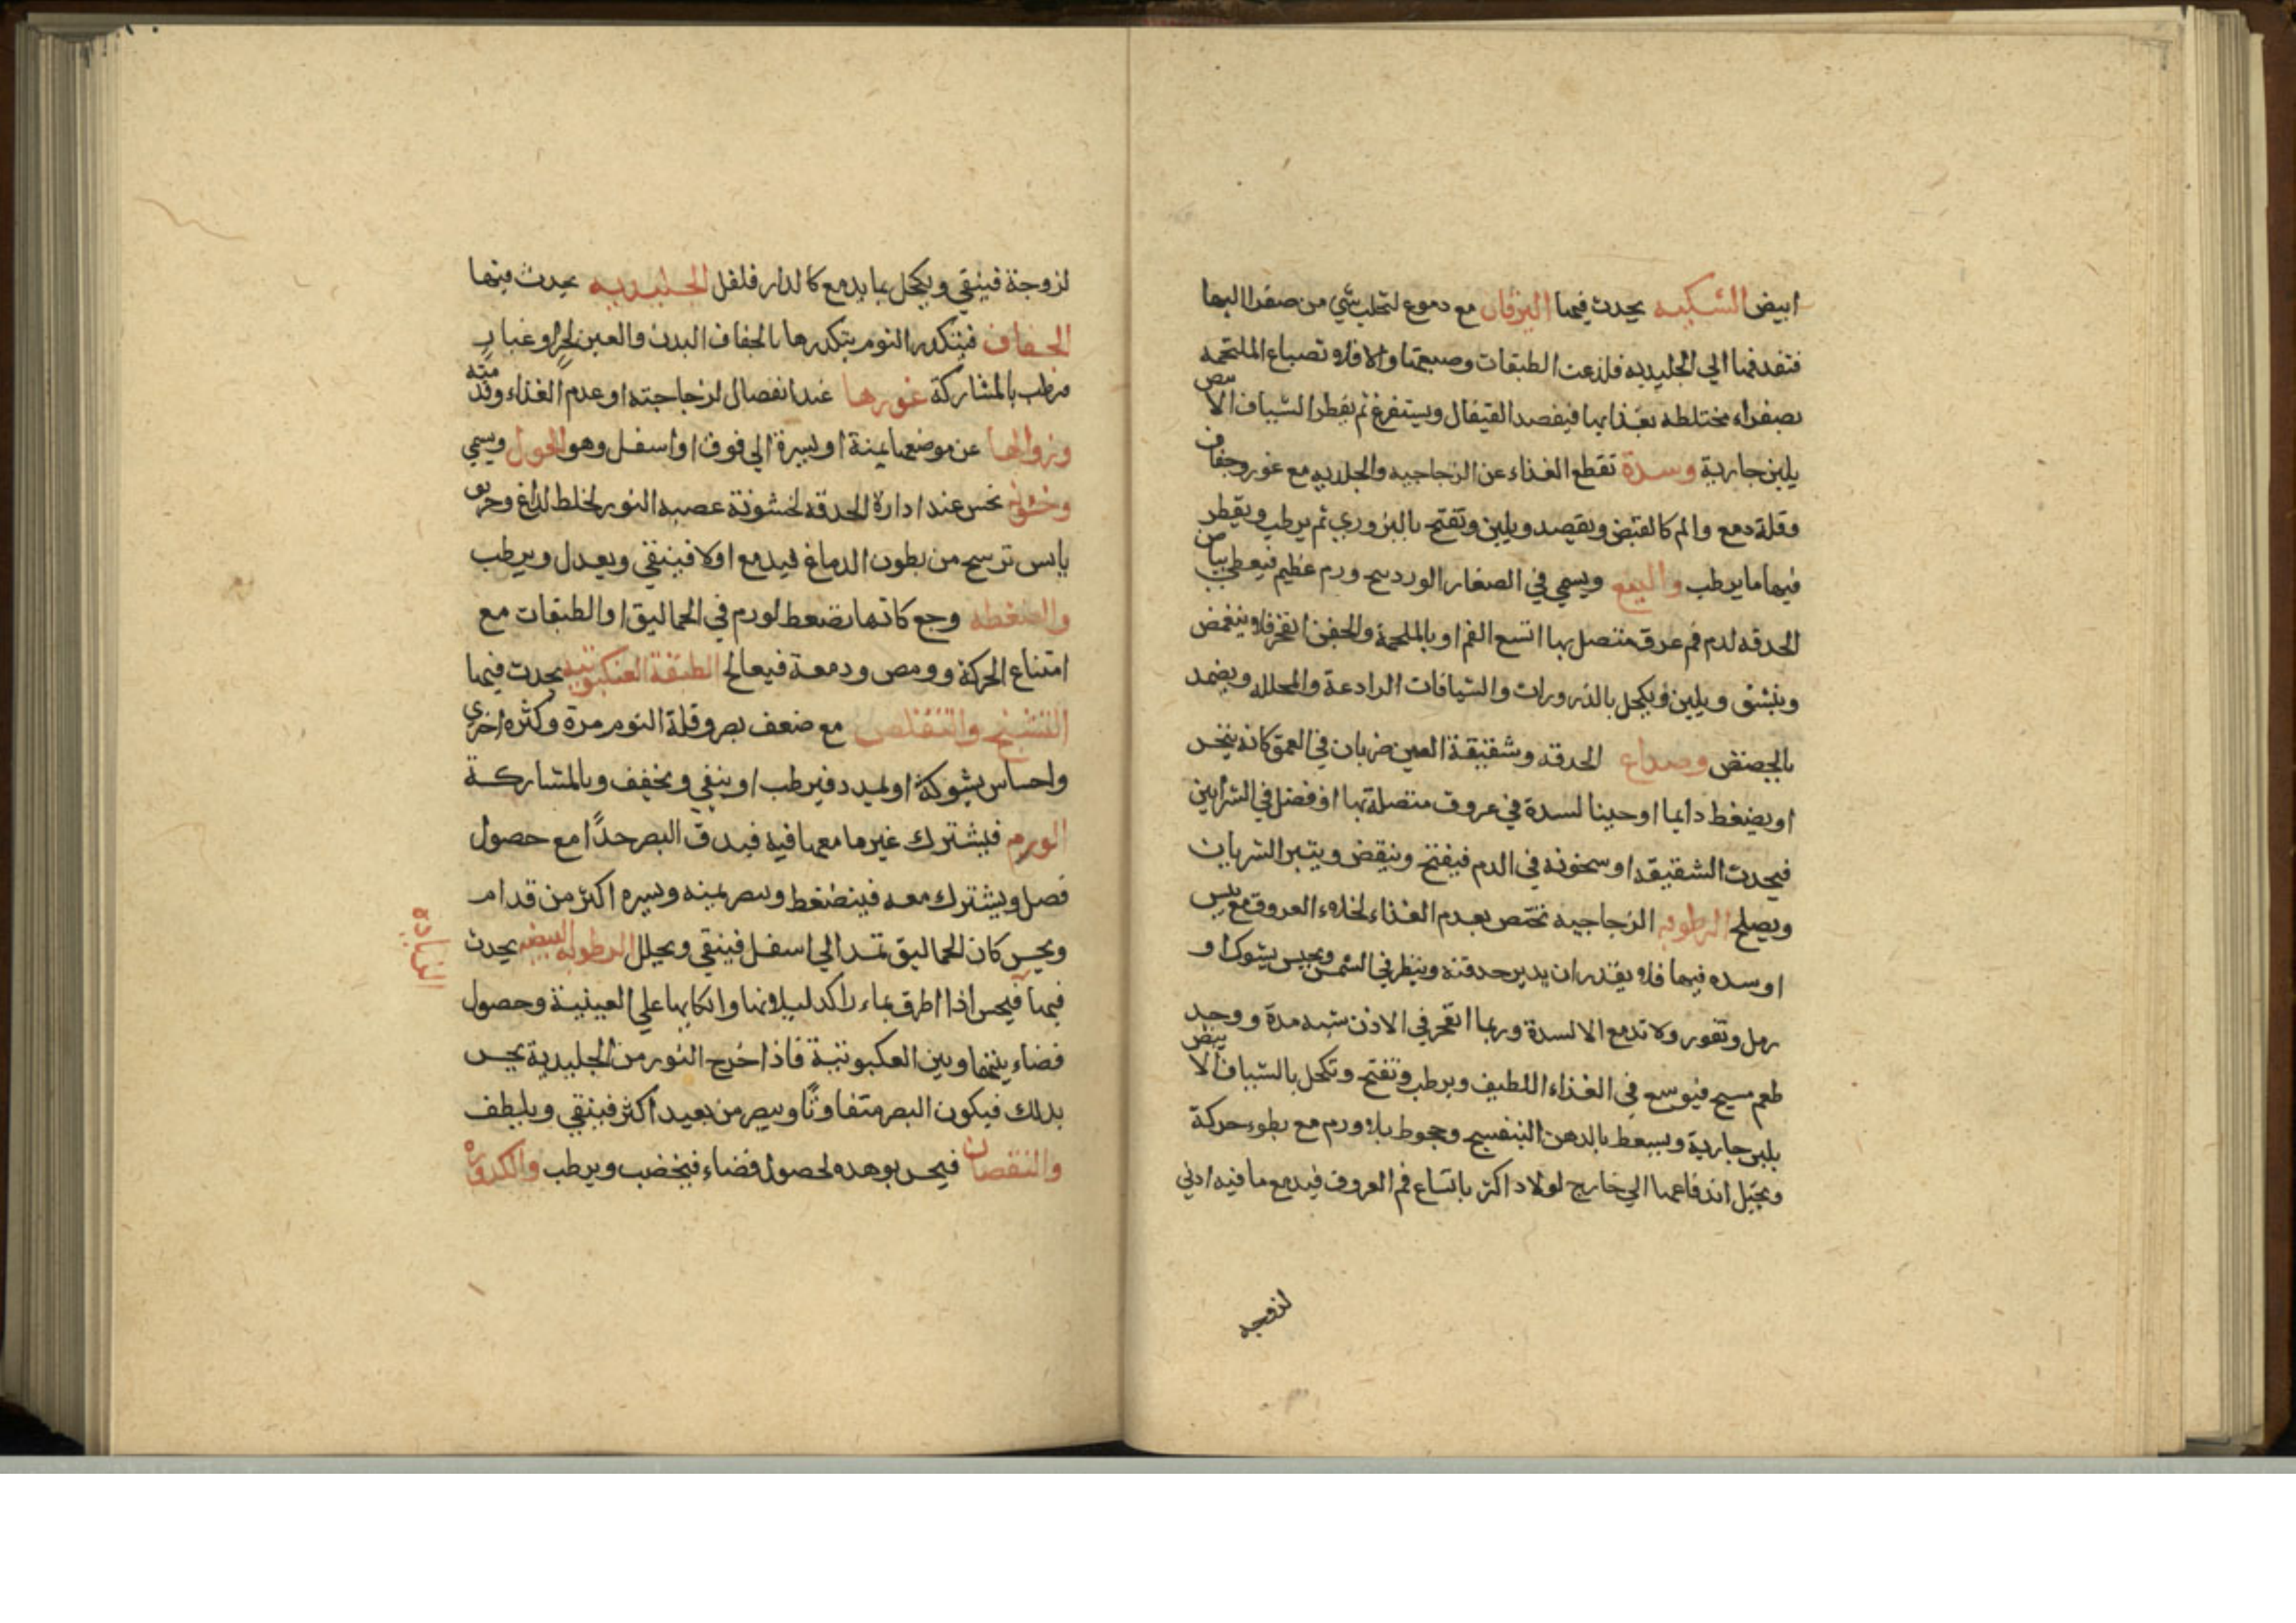 ابيض الشبكيه يحدث فيها اليرقان مع دموع لتحلب شي من صفرا اليها
فتنفذ منها الي الجليديه فلذعت الطبقات وصبغتها والا فلا وتصباغ الملتحمه
بصفراء مختلطه بغذايها فيفصد القيفال ويستفرغ ثم يقطر الشياف الابيض
بلبن جارية وسدة تقطع الغذاء عن الزجاجيه والجلديه مع غور وجفاف
وقلة دمع والم كالقبض ويفصد ويلين وتفتح بالبزوري ثم يرطب ويقطر
فيها ما يرطب والينع ويسمي في الصغار الوردينج ورم عظيم فيعطي بياض
الحدقه لدم فم عرق متصل بها اتسع الفم او بالملحمة والجفن انفجر فلا ينغمض
وينشق ويلين ويكحل بالذرورات والشيافات الرادعة والمحلله ويضمد
بالجصض وصداع الحدقه وشقيقة العين ضربان في العمق كانه ينخس
او يضغط دايما او حينا لسدة في عروق متصلة بها او فضل في الشرايين
فيحدث الشقيقه او سخونه في الدم فيفتح وينقض ويتبر الشريان
ويصلح الرطوبه الزجاجيه تختص بعدم الغذاء لخلاء العروق مع يبس
او سده فيها فلا يقدر ان يدير حدقته وينظر في الشمس ويحس بشوك او
رمل وتغور ولا تدمع الا لسدة وربما انفجر في الاذن شبه مدة ووجد
طعم مسيح فيوسع في الغذاء اللطيف ويرطب وتفتح وتكحل بالشياف الابيض
بلبن جارية ويسعط بالدهن البنفسج وجحوظ بلا ورم مع بطوء حركة
ويخيل اندفاعها الي خارج لولاد اكثر باتساع فم العروق فيدمع ما فيه ادني
لزوجه
لزوجة فينقي ويكحل بما يدمع كالدار فلفل الجليديه يحدث فيها
الجفاف فيتكدر النوم بتكدرها بالجفاف البدن والعين لحر او غبار
فرطب بالمشاركة غورها عند انفصال لزجاجته او عدم الغذاء وقد مته
وزوالها عن موضعها يمنة او يسرة الي فوق او اسفل وهو الحول ويسمي
وخشونة نخس عند ادارة الحدقه لخشونة عصبه النور لخلط لذاغ وحريق
يابس ترسح من بطون الدماغ فيدمع اولا فينقي ويعدل ويرطب
والضغطه وجع كانها تضغط لورم في الحماليق او الطبقات مع
امتناع الحركة وومض ودمعة فيعالج الطبقة العنكبوتيه يحدث فيها
التشنج والتقلص مع ضعف بصر وقلة النوم مرة وكثره اخري
واحساس بشوكة او تمدد فيرطب او ينقي ويخفف وبالمشاركة
الورم فيشترك غيرها معها فيه فيدق البصر حدًا مع حصول
فصل ويشترك معه فينضغط وبصر يمنه ويسره اكثر من قدام
ويحس كان الحماليق تمتد الي اسفل فينقي ويحلل الرطوبه البيضيه يحدث
فيها فيحس اذا اطرق بماء راكد ليلانها واتكايها علي العينية وحصول
الزيادة
فضاء بينها وبين العكبوتية فاذا خرج النور من الجليدية يحس
بذلك فيكون البصر متفاوتًا ويبصر من بعيد اكثر فينقي ويلطف
والنقصان فيحس بوهده لحصول فضاء فيخضب ويرطب والكدوره